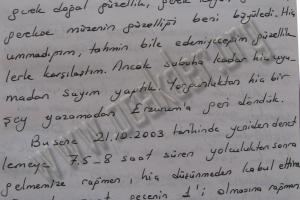 gerek doğal güzellik, gerek
gerekse müzenin güzelliği beni büyüledi. Hiç
ummadığım, tahmin bile edemiyeceğim güzellik
lerle karşılaştım. Ancak sabaha kadar hiç uyu
madan sayım yaptık. Yorgunluktan hiç bir
şey yazamadan Erzurum'a geri döndük.
Bu sene 21.10.2003 tarihinde yeniden denet
lemeye 7,5-8 saat süren yolculuktan sonra
gelmemize rağmen, hiç düşünmeden kabul ettim
saat gecenin 1'i olmasına rağmen